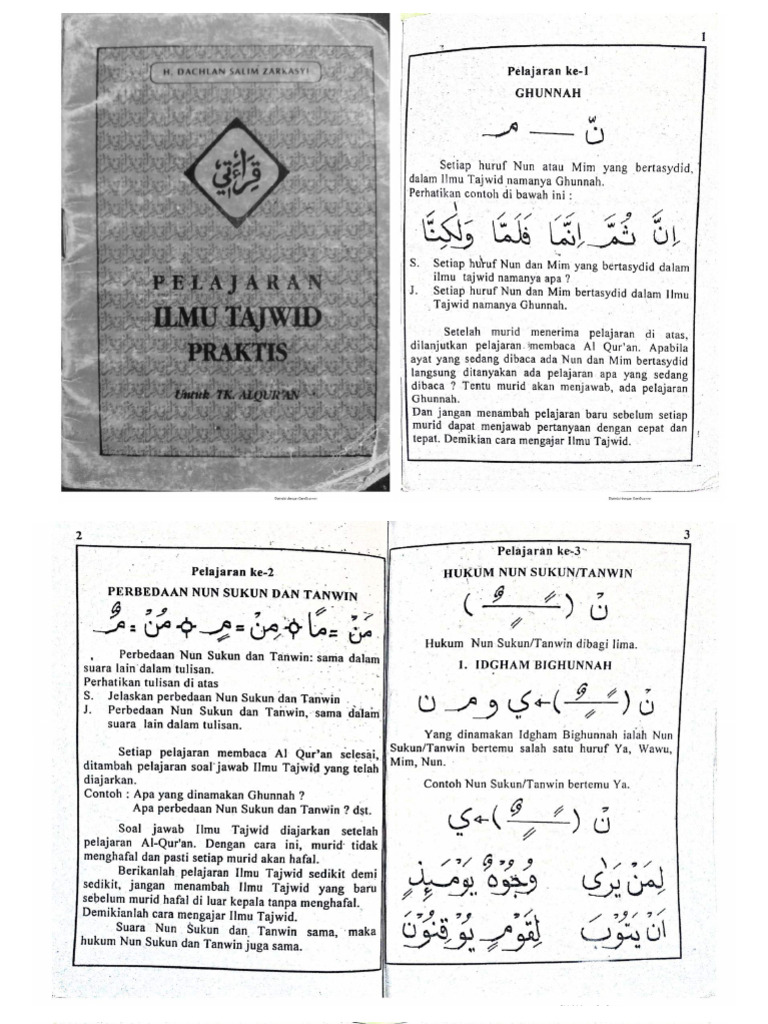 H. DACHLAN SALIM ZARKASYI
قراءتي
PELAJARAN
ILMU TAJWID
PRAKTIS
Untuk TK. ALQUR'AN
1
Pelajaran ke-1
GHUNNAH
نّ — م
Setiap huruf Nun atau Mim yang bertasydid,
dalam Ilmu Tajwid namanya Ghunnah.
Perhatikan contoh di bawah ini :
اِنَّ ثُمَّ اِنَّمَا فَلَمَّا وَلٰكِنَّا
S. Setiap huruf Nun dan Mim yang bertasydid dalam
ilmu tajwid namanya apa ?
J. Setiap huruf Nun dan Mim bertasydid dalam Ilmu
Tajwid namanya Ghunnah.
Setelah murid menerima pelajaran di atas,
dilanjutkan pelajaran membaca Al Qur'an. Apabila
ayat yang sedang dibaca ada Nun dan Mim bertasydid
langsung ditanyakan ada pelajaran apa yang sedang
dibaca ? Tentu murid akan menjawab, ada pelajaran
Ghunnah.
Dan jangan menambah pelajaran baru sebelum setiap
murid dapat menjawab pertanyaan dengan cepat dan
tepat. Demikian cara mengajar Ilmu Tajwid.
2
Pelajaran ke-2
PERBEDAAN NUN SUKUN DAN TANWIN
مَنْ = مًا مِنْ = مٍ مُنْ = مٌ
Perbedaan Nun Sukun dan Tanwin: sama dalam
suara lain dalam tulisan.
Perhatikan tulisan di atas
S. Jelaskan perbedaan Nun Sukun dan Tanwin
J. Perbedaan Nun Sukun dan Tanwin, sama dalam
suara lain dalam tulisan.
Setiap pelajaran membaca Al Qur'an selesai,
ditambah pelajaran soal jawab Ilmu Tajwid yang telah
diajarkan.
Contoh : Apa yang dinamakan Ghunnah ?
Apa perbedaan Nun Sukun dan Tanwin ? dst.
Soal jawab Ilmu Tajwid diajarkan setelah
pelajaran Al-Qur'an. Dengan cara ini, murid tidak
menghafal dan pasti setiap murid akan hafal.
Berikanlah pelajaran Ilmu Tajwid sedikit demi
sedikit, jangan menambah Ilmu Tajwid yang baru
sebelum murid hafal di luar kepala tanpa menghafal.
Demikianlah cara mengajar Ilmu Tajwid.
Suara Nun Sukun dan Tanwin sama, maka
hukum Nun Sukun dan Tanwin juga sama.
3
Pelajaran ke-3
HUKUM NUN SUKUN/TANWIN
نْ (ـًـٍـٌ)
Hukum Nun Sukun/Tanwin dibagi lima.
1. IDGHAM BIGHUNNAH
نْ (ـًـٍـٌ) ← ي و م ن
Yang dinamakan Idgham Bighunnah ialah Nun
Sukun/Tanwin bertemu salah satu huruf Ya, Wawu,
Mim, Nun.
Contoh Nun Sukun/Tanwin bertemu Ya.
نْ (ـًـٍـٌ) ← ي
لِمَنْ يَرٰى وُجُوْهٌ يَوْمَىِٕذٍ
اَنْ يَتُوْبَ لِقَوْمٍ يُوْقِنُوْنَ